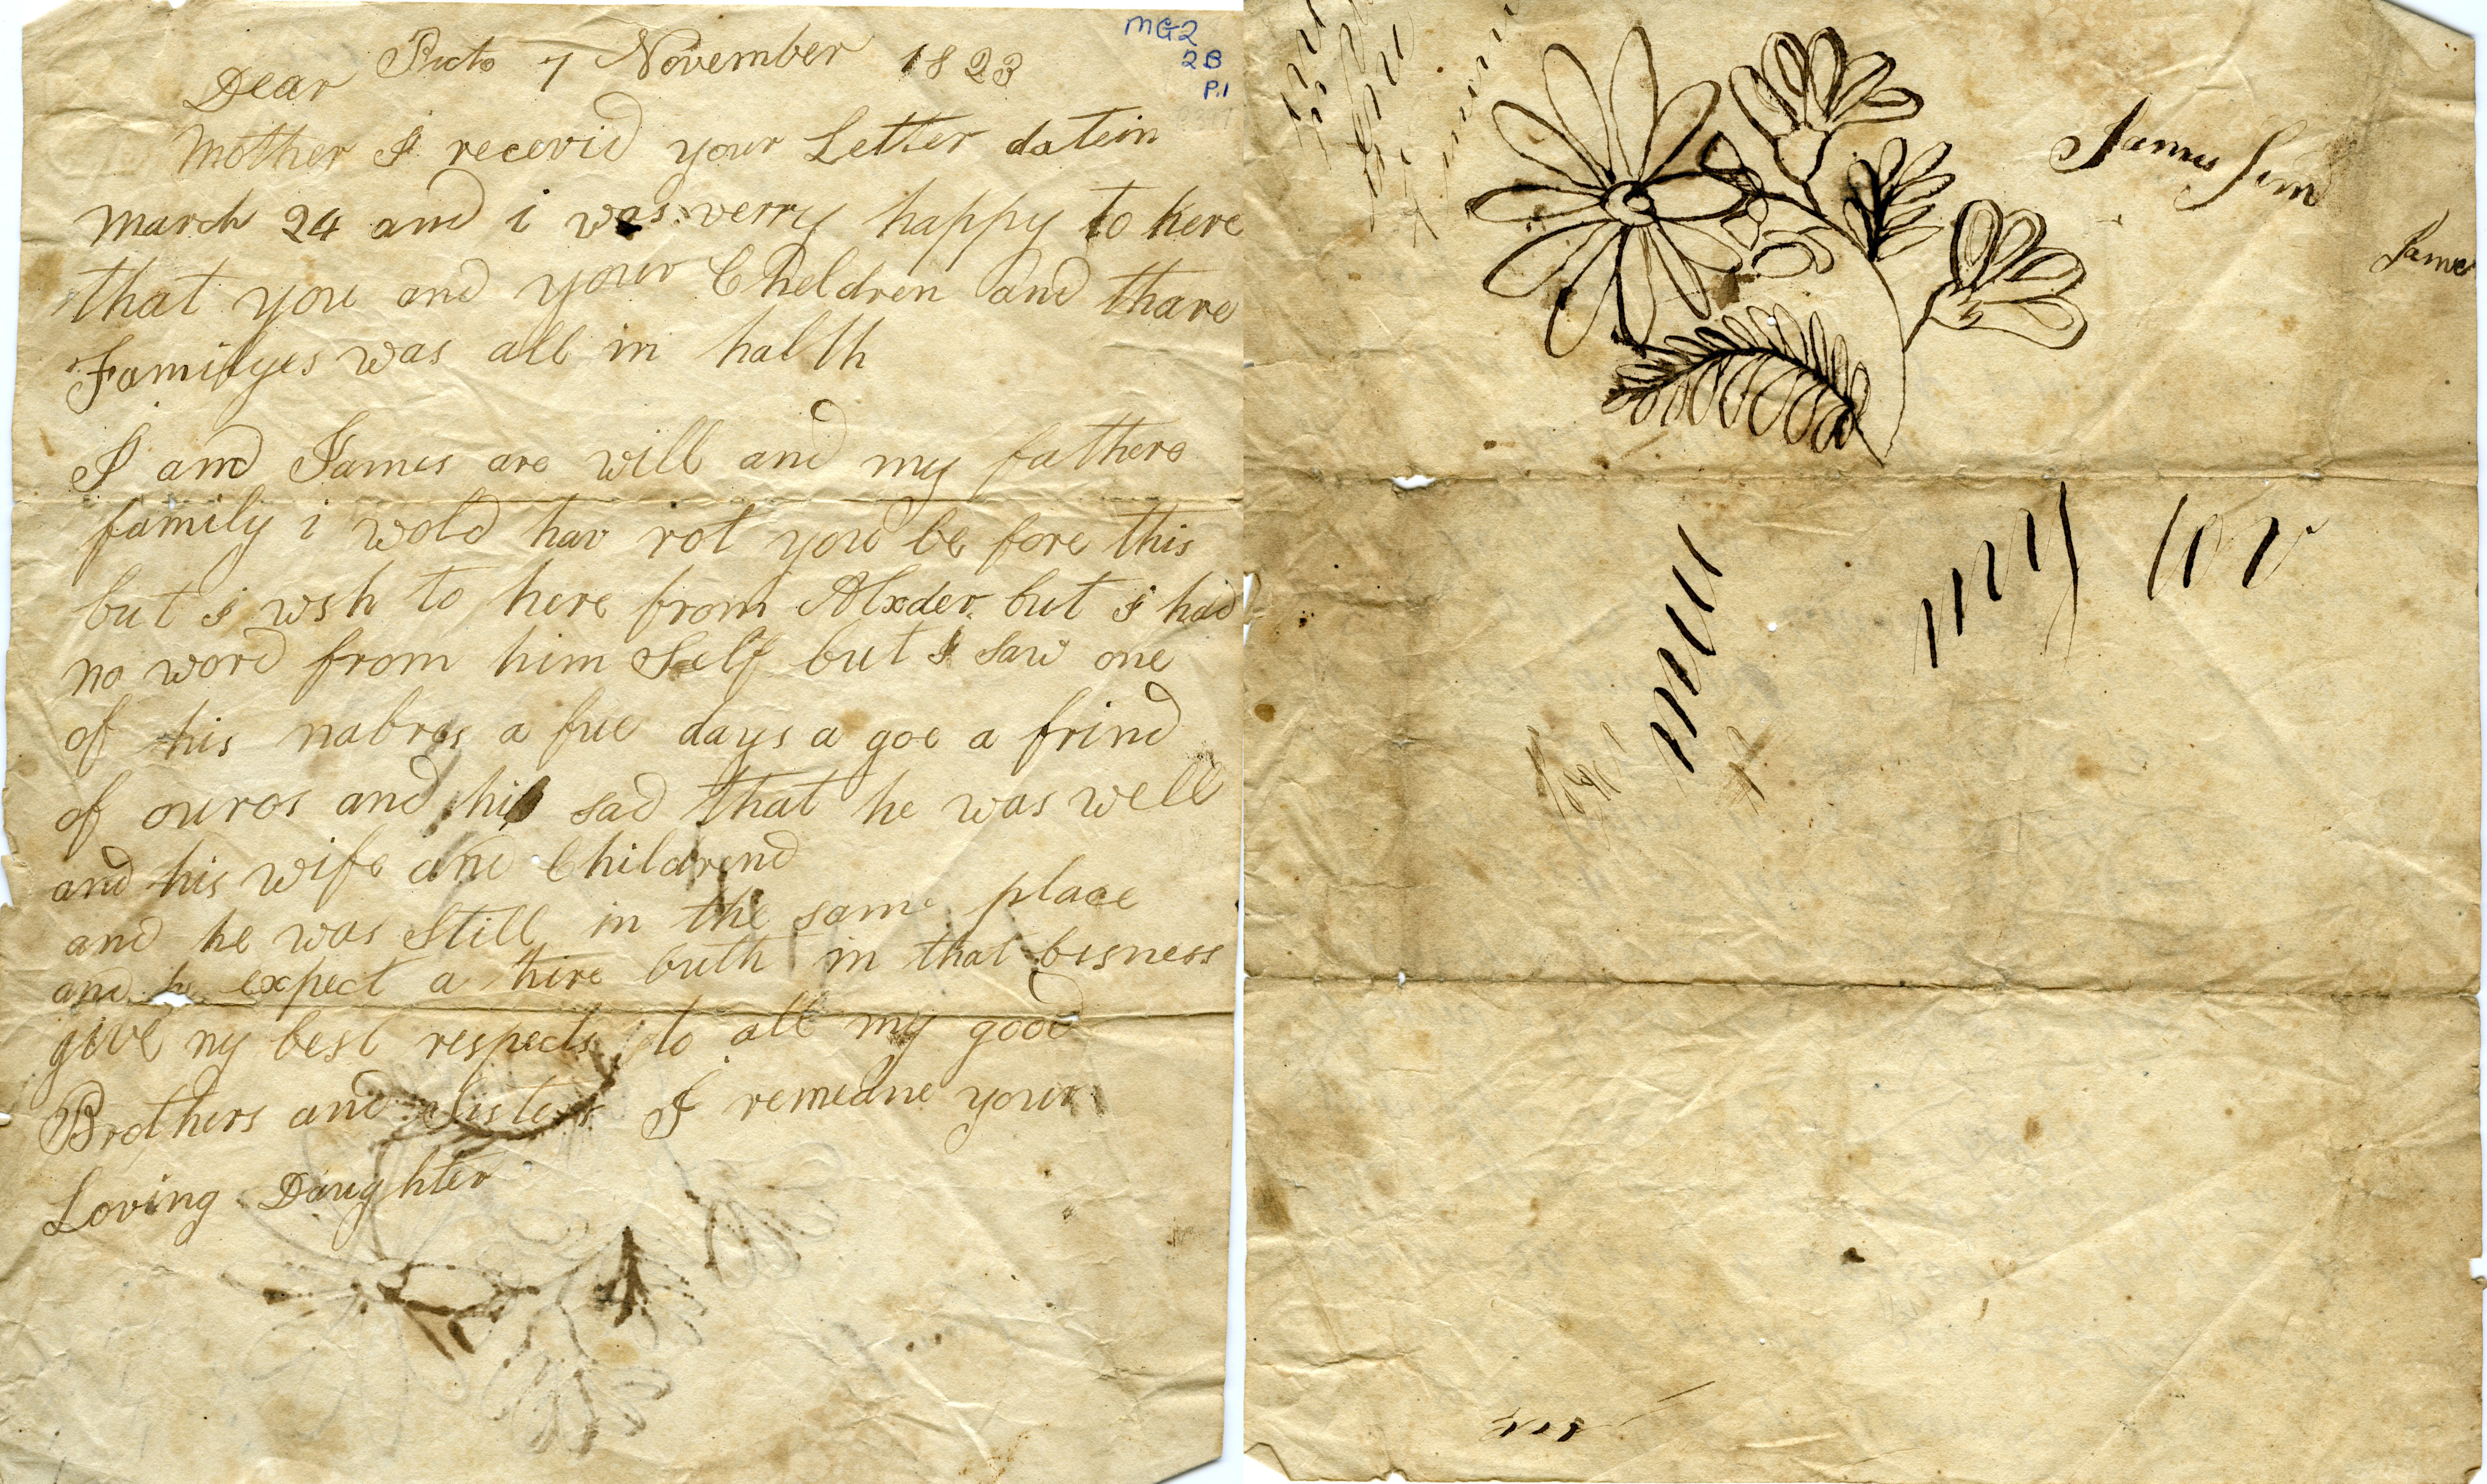 MG2
2B
P.1
Picto 7 November 1823
Dear
Mother I recevid your Letter datein
March 24 and i was verry happy to here
that you and your Cheldren and thare
Familyes was all in halth
I and James are will and my fathers
family i wold hav rot you be fore this
but i wsh to here from Alxder but i had
no word from him Self but I saw one
of his nabros a fue days a goe a frind
of ouros and his sad that he was well
and his wife and Childrend
and he was Still in the same place
and he expect a hire buth in that bisness
give my best respects to all my good
Brothers and Sisters I remedne your
Loving Daughter
James Sim
James
my